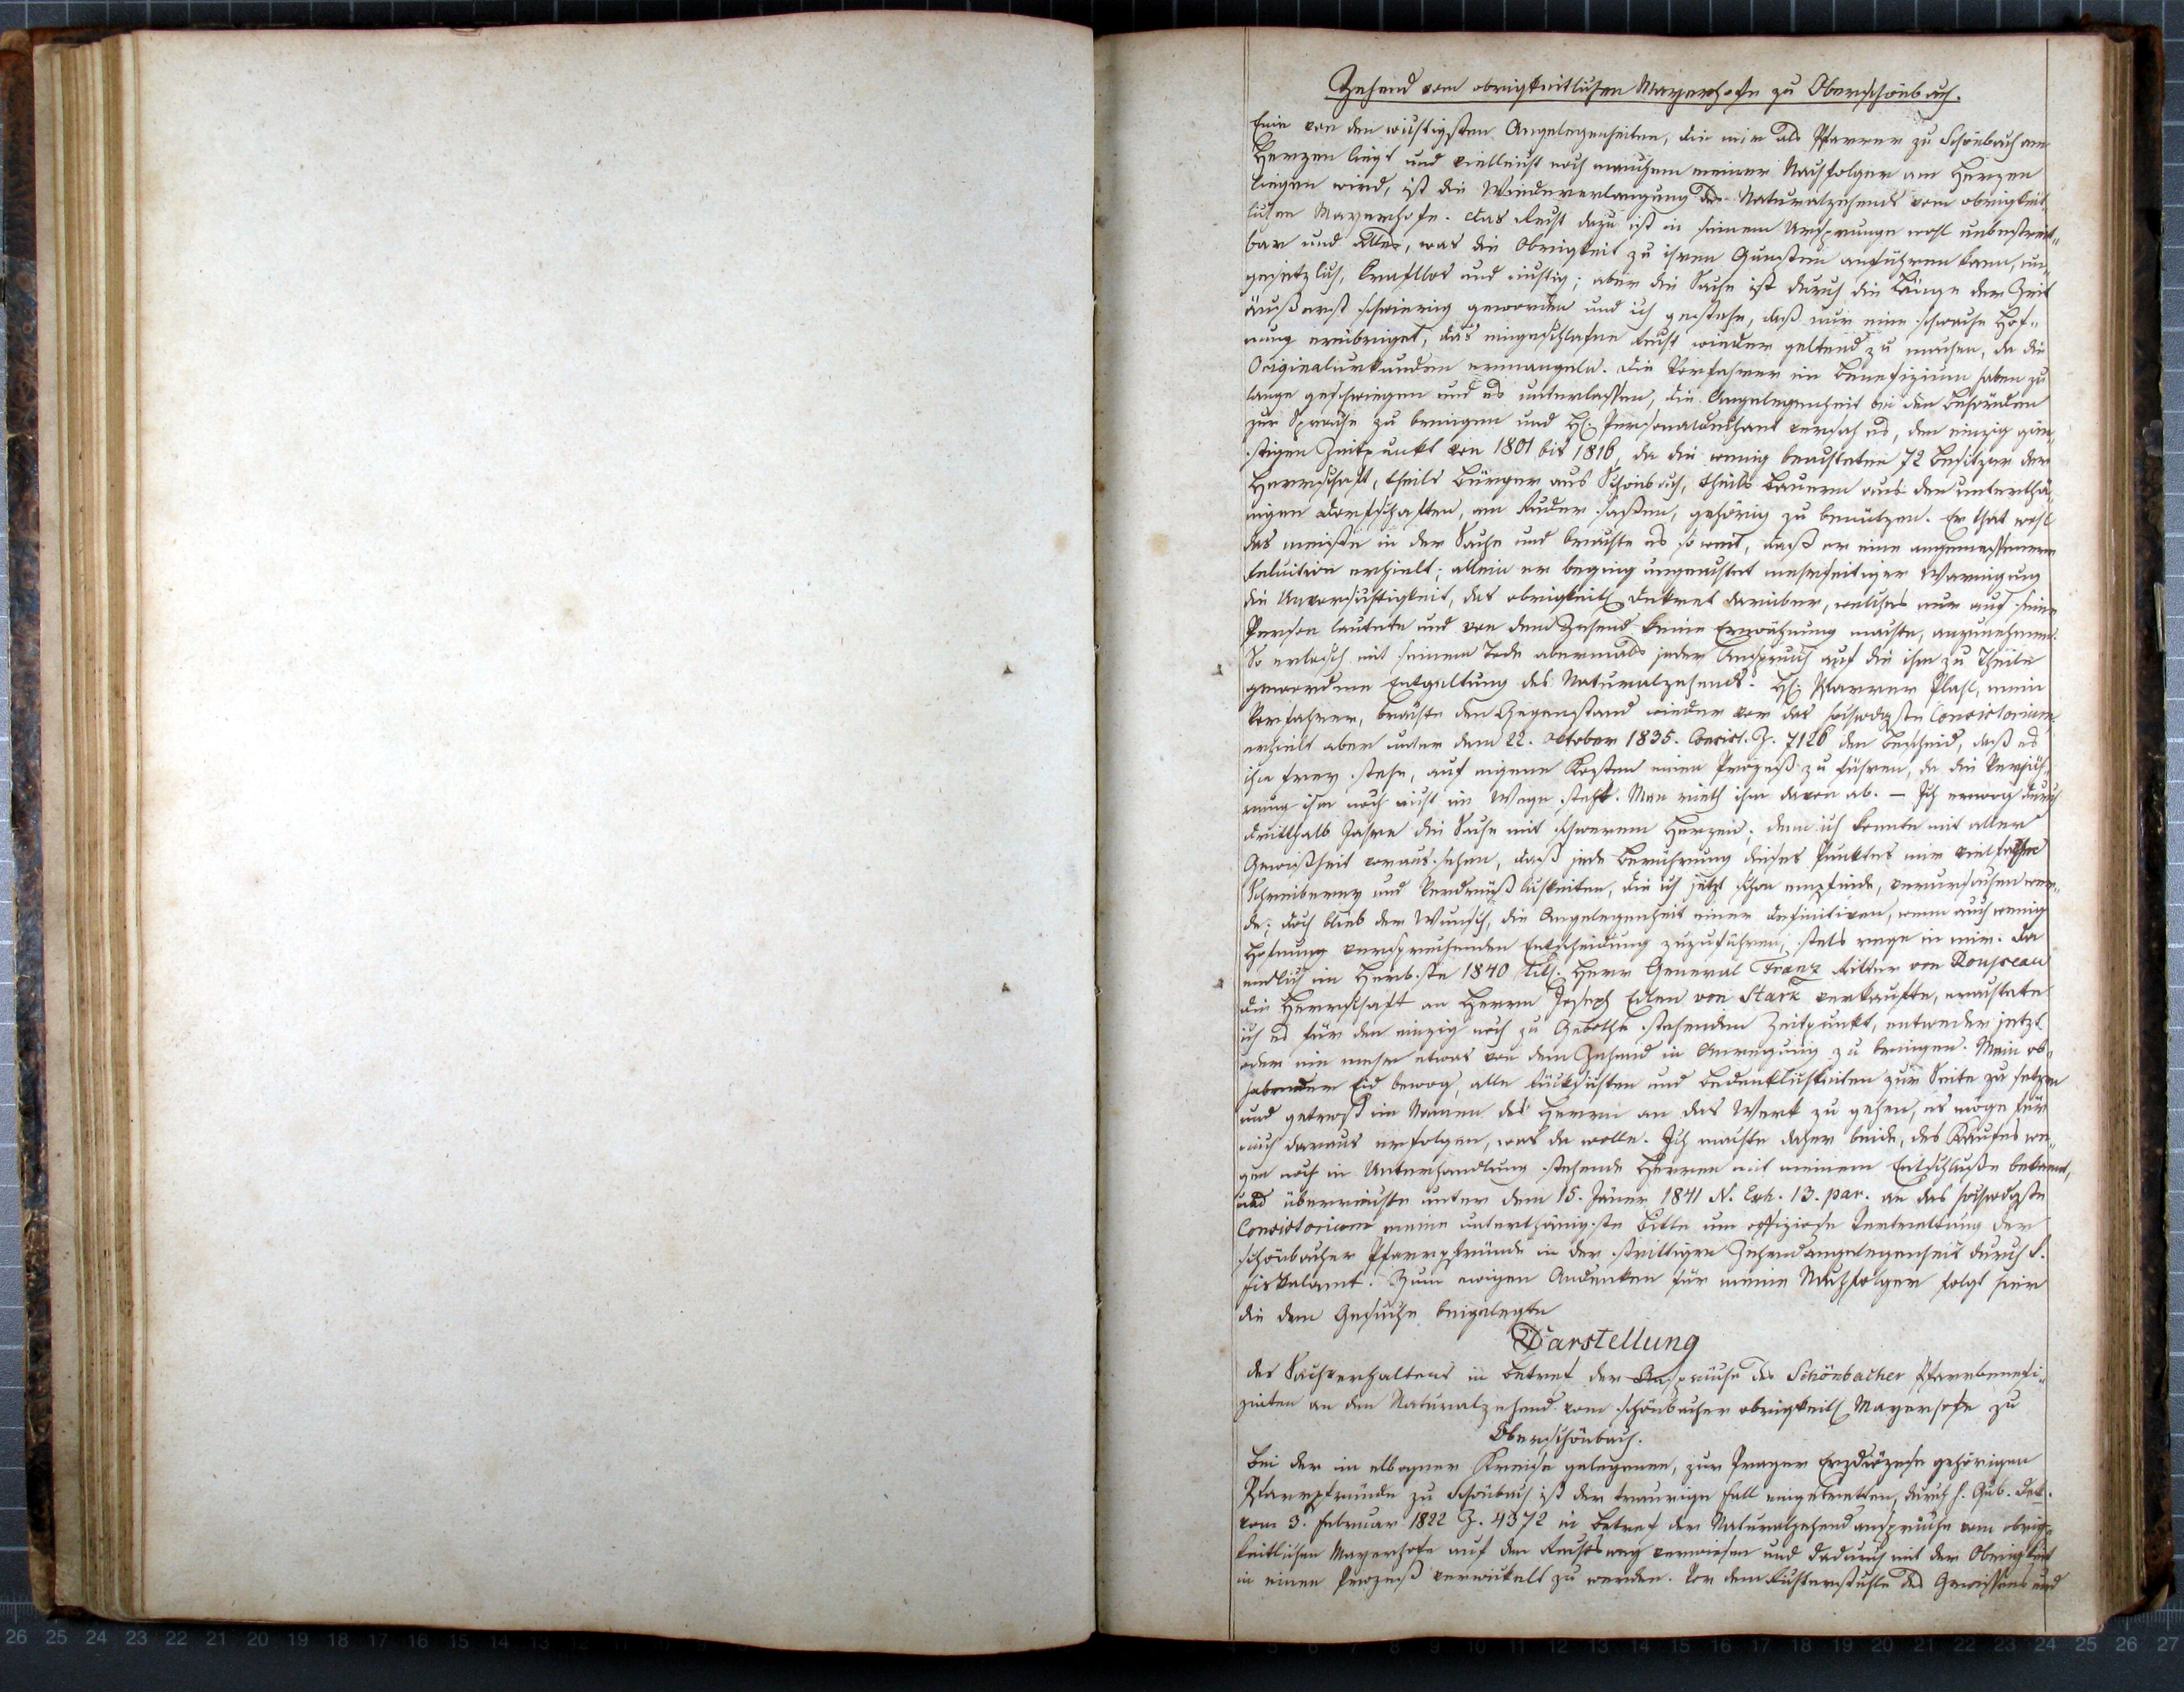 Zehend vom obrigkeitlichen Mayerhofe zu Oberschönbach.
Eine von den wichtigsten Angelegenheiten, die mir als Pfarrer zu Schönbach am
Herzen liegt und vielleicht noch manchem meiner Nachfolger am Herzen
liegen wird, ist die Wiederverlangung des Naturalzehends vom obrigkeit¬
lichen Mayerhofe. Das Recht dazu ist in seinem Ursprunge wohl unbestreit¬
bar und alles, was die Obrigkeit zu ihren Gunsten anführen kann, un¬
gesetzlich, kraftlos und nichtig; aber die Sache ist durch die Länge der Zeit
äußerst schwierig geworden und ich gestehe, daß nur eine schwache Hof¬
nung erübriget, das eingeschlafene Recht wieder geltend zu machen, da die
Originalurkunden ermangeln. Die Vorfahrer im Benefizium haben zu
lange geschwiegen und es unterlassen, die Angelegenheit bei den Behörden
zur Sprache zu bringen und H. Personaldechant versah es, den einzig gün¬
stigen Zeitpunkt von 1801 bis 1816, da die wenig beachteten 72 Besitzer der
Herrschaft, theils Bürger aus Schönbach, theils Bauern aus den unterthä¬
nigen Dorfschaften, am Ruder saßen, gehörig zu benützen. Er that wohl
das meiste in der Sache und brachte es so weit, daß er eine angemessenere
Reluition erhielt; allein er beging ungeachtet mehrseitiger Warnigung
die Unvorsichtigkeit, das obrigkeitl. Dekret darüber, welches nur auf seine
Person lautete und von dem Zehend keine Erwähnung machte, anzunehmen.
So erlosch mit seinem Tode abermals jeder Anspruch auf die ihm zu Theile
gewordene Entgeltung des Naturalzehends. H. Pfarrer Plahl, mein
Vorfahrer, brachte den Gegenstand wieder vor das hochwdgste Consistorium,
erhielt aber unter dem 22. October 1835. Consist. Z. 7126 den Bescheid, daß es
ihm frey stehe, auf eigene Kosten einen Prozeß zu führen, da die Verjäh¬
rung ihm noch nicht im Wege steht. Man rieth ihm davon ab. – Ich erwog durch
dritthalb Jahre die Sache mit schwerem Herzen; denn ich konnte mit aller
Gewißheit voraus sehen, daß jede Berührung dieses Punktes mir vielfache
Schreiberey und Verdrüßlichkeiten, die ich jetzt schon empfinde, verursachen wer¬
de; doch blieb der Wunsch, die Angelegenheit einer definitiven, wenn auch wenig
Hofnung versprechenden Entscheidung zuzuführen, stets rege in mir. Da
endlich im Herbste 1840 Titl. Herr General Franz Ritter von Rousseau
die Herrschaft an Herrn Joseph Edlen von Stark verkaufte, erachtete
ich es für den einzig noch zu Gebothe stehenden Zeitpunkt, entweder jetzt
oder nie mehr etwas von dem Zehend in Anregung zu bringen. Mein ob¬
habender Eid bewog, alle Rücksichten und Bedenklichkeiten zur Seite zu setzen
und getrost im Namen des Herrn an das Werk zu gehen, es möge für
mich daraus erfolgen, was da wolle. Ich machte daher beide, des Kaufes we¬
gen noch in Unterhandlung stehende Herren mit meinem Entschluße bekannt,
und überreichte unter dem 15. Jäner 1841 N. Exh. 13. par. an das hochwdgste
Consistorium meine unterthänigste Bitte um offiziose Vertrettung der
schönbacher Pfarrpfründe in der strittigen Zehendangelegenheit durch k.
Fiskalamt. Zum ewigen Andenken für meine Nachfolger folgt hier
die dem Gesuche beigelegte
Darstellung
des Sachverhaltens in Betref der Ansprüche des Schönbacher Pfarrbenefi¬
ziaten an den Naturalzehend vom schönbacher obrigkeitl. Mayerhofe zu
Oberschönbach.
Bei der im elbogner Kreise gelegenen, zur Prager Erzdiözese gehörigen
Pfarrpfründe zu Schönbach ist der traurige Fall eingetretten, durch h. Gub. Dek.
vom 3. Februar 1822 Z. 4372 in Betref der Naturalzehendansprüche vom obrig¬
keitlichen Mayerhofe auf den Rechtsweg verwiesen und dadurch mit der Obrigkeit
in einen Prozeß verwickelt zu werden. Vor dem Richterstuhle des Gewissens und